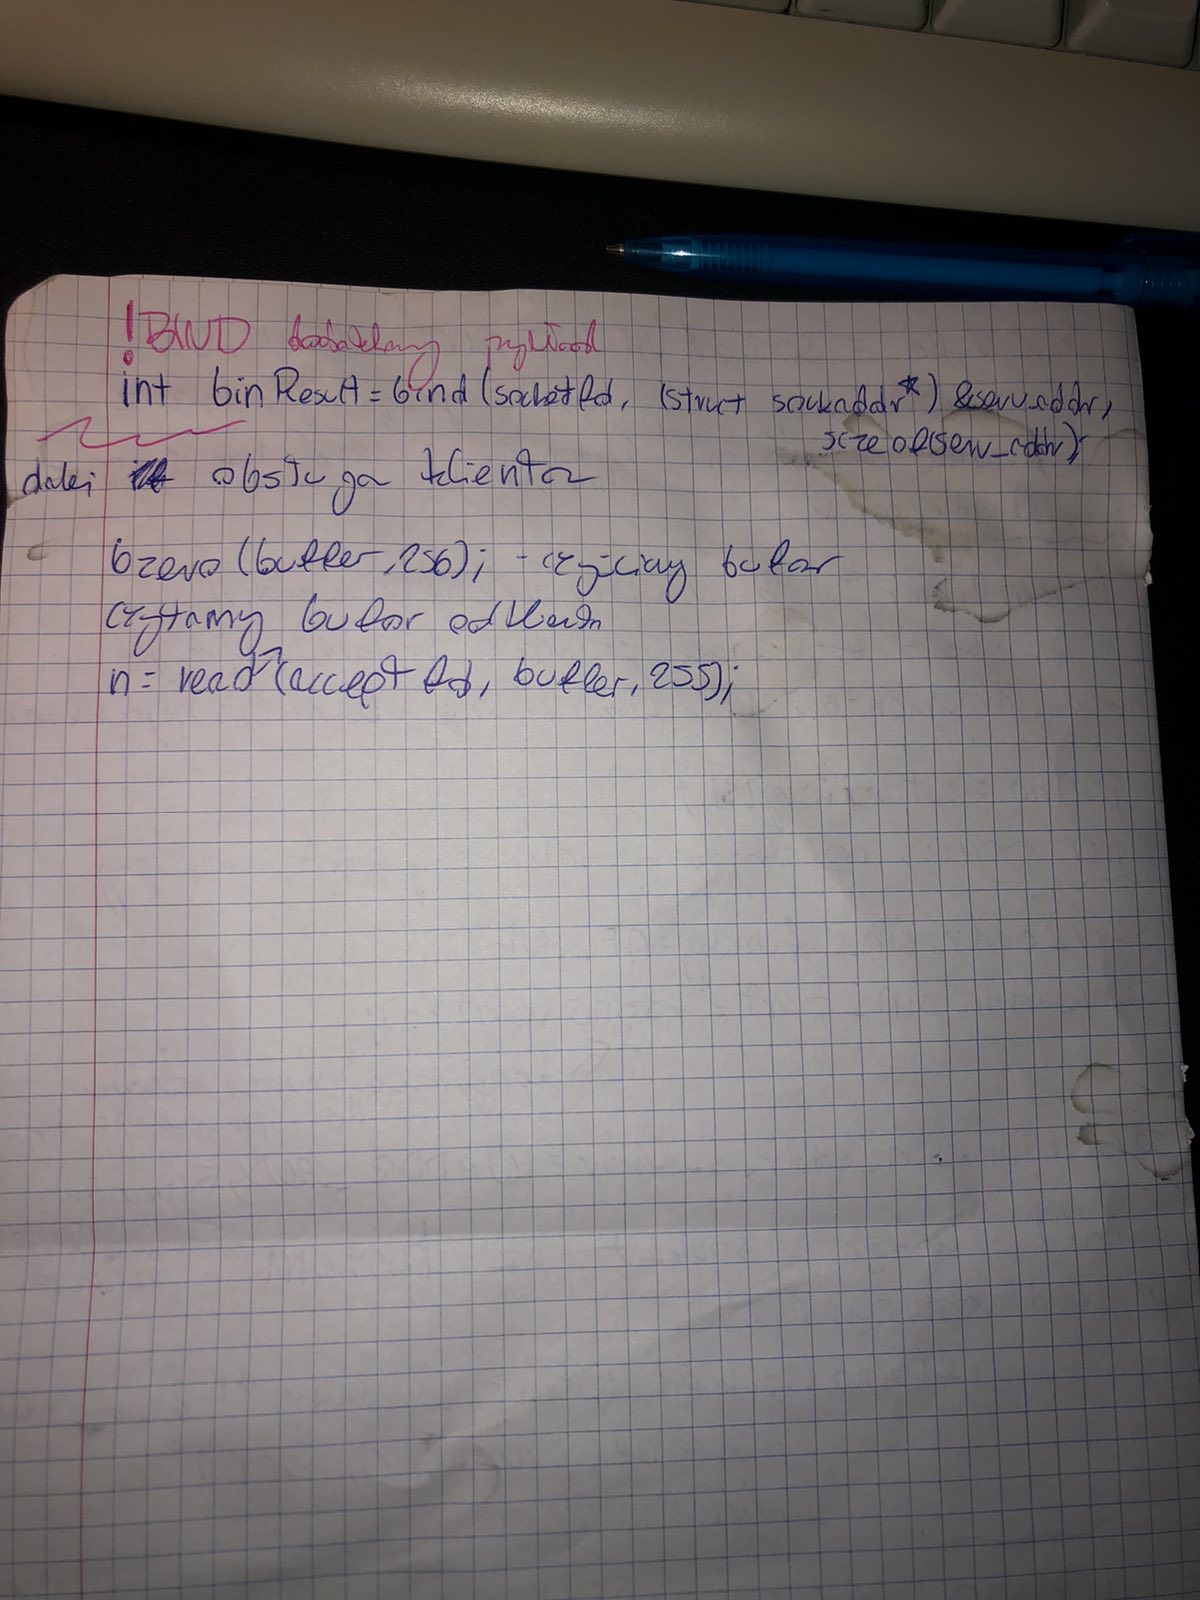 ! BIND dokładny przykład
int binResult = bind(socketfd, (struct sockaddr*) &serv_addr,
sizeof(serv_addr);
dalej obsługa klienta
bzero(buffer, 256); - czyścimy bufor
czytamy bufor od klienta
n = read(acceptfd, buffer, 255);